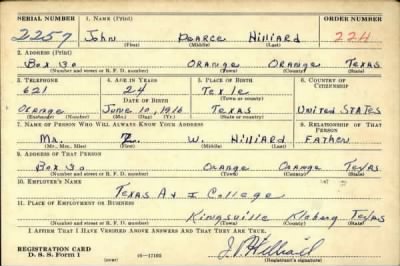 SERIAL NUMBER 1. NAME (Print) ORDER NUMBER
2257 John Pearce Hilliard 224
(First) (Middle) (Last)
2. ADDRESS (Print)
Box 30 Orange Orange Texas
(Number and street or R. F. D. number) (Town) (County) (State)
3. TELEPHONE 4. AGE IN YEARS 5. PLACE OF BIRTH 6. COUNTRY OF CITIZENSHIP
621 24 Texle
DATE OF BIRTH (Town or county)
Orange June 10, 1916 Texas United States
(Exchange) (Number) (Mo.) (Day) (Yr.) (State or country)
7. NAME OF PERSON WHO WILL ALWAYS KNOW YOUR ADDRESS 8. RELATIONSHIP OF THAT PERSON
Mr. Z. W. Hilliard Father
(Mr., Mrs., Miss) (First) (Middle) (Last)
9. ADDRESS OF THAT PERSON
Box 30 Orange Orange Texas
(Number and street or R. F. D. number) (Town) (County) (State)
10. EMPLOYER'S NAME
Texas A & I College
11. PLACE OF EMPLOYMENT OR BUSINESS
Kingsville Kleberg Texas
(Number and street or R. F. D. number) (Town) (County) (State)
I AFFIRM THAT I HAVE VERIFIED ABOVE ANSWERS AND THAT THEY ARE TRUE.
REGISTRATION CARD
D. S. S. Form 1 16-17105 (Registrant's signature)